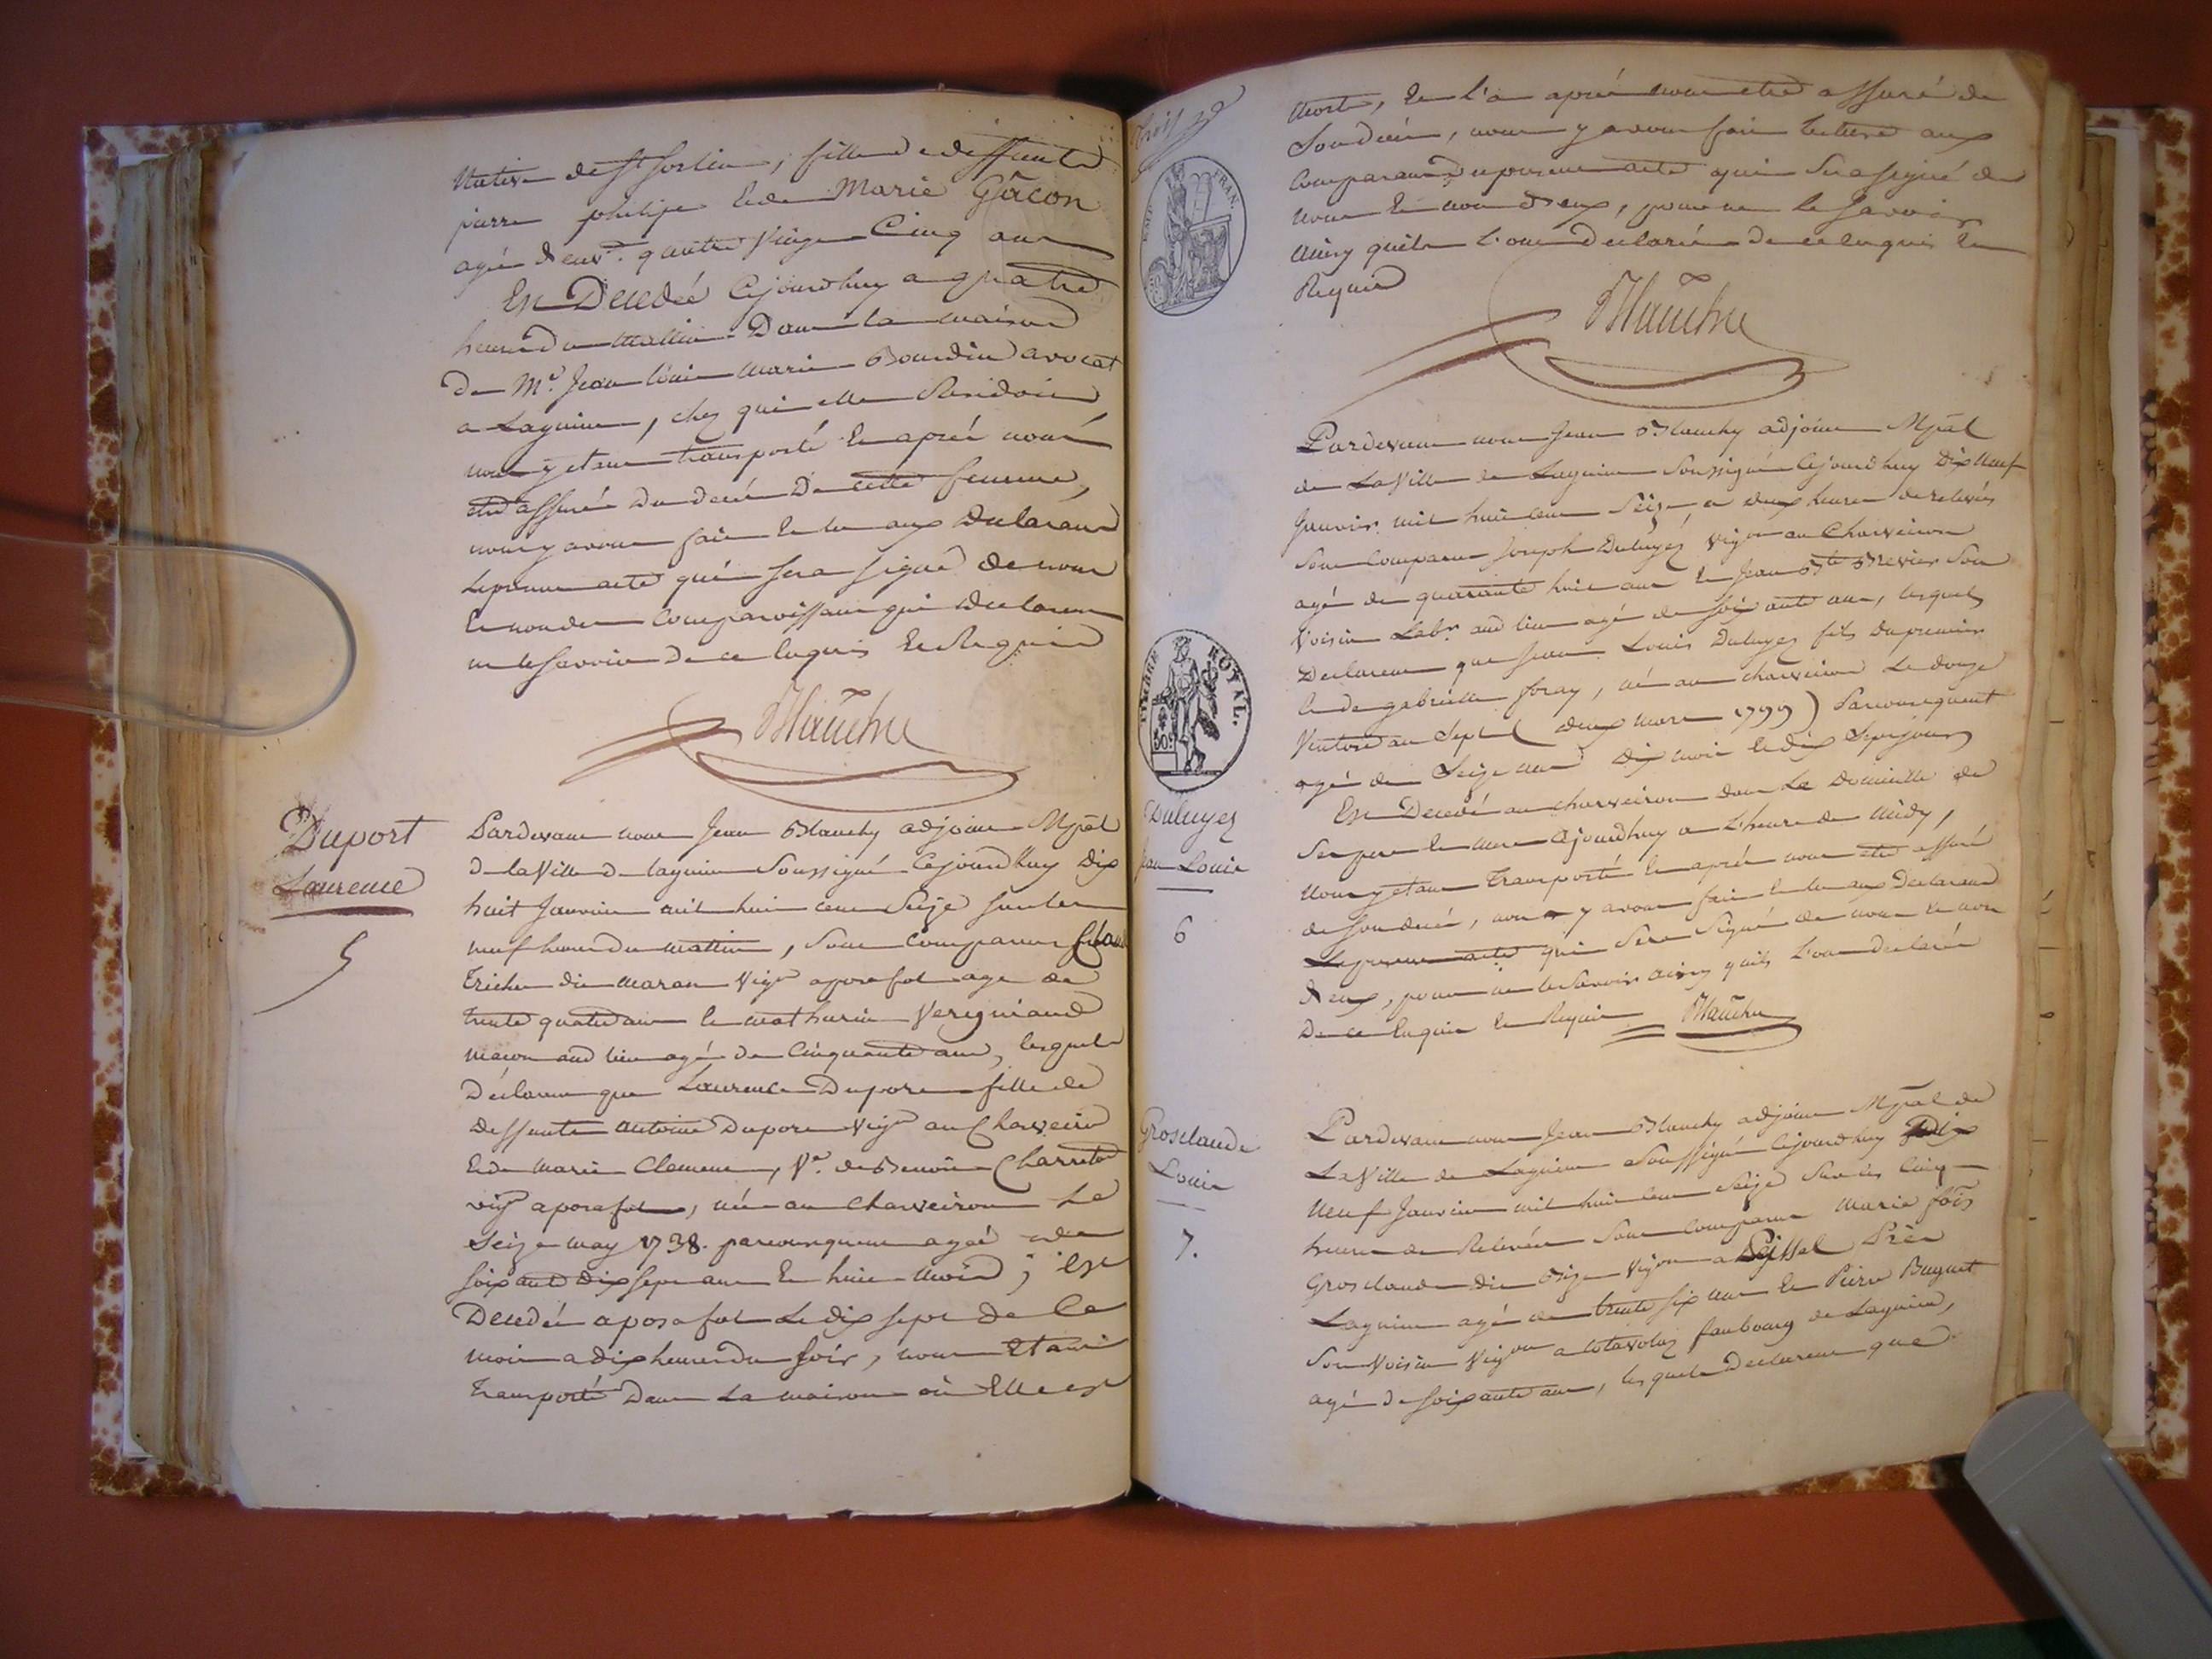 Native de St Sorlin, fille de deffunts
pierre philipe et de Marie Gâcon
agée d'env.n quatre Vingt Cinq ans
Est Decedée Cejourdhuy a quatre
heures du mattin Dans la maison
De Me. Jean Louis Marie Bourdin avocat
a Lagnieu, chez qui elle Residoit,
nous y etant transporté et après nous
etre assuré du decés De cette femme,
nous y avons fait et lu aux Declarans
le present acte qui sera signé de nous
et non des Comparoissans qui declarent
ne le savoir de ce enquis et Requis
Blanchy
Duport
Laurence
5
Pardevant nous Jean Blanchy adjoint Mpal
de la Ville de lagnieu Soussigné Cejourdhuy Dix
huit Janvier mil huit cent Seize sur les
neuf heures du mattin, Sont Comparus Claude
Triche dit maran Vigon a posafol agé de
trente quatre ans et mathurin Vergniaud
maçon aud lieu agé de Cinquante ans, lesquels
Déclarent que Laurence Duport fille de
Deffunts Antoine Duport Vigon au Charveiron
et de Marie Clement, Ve. de Benoit Charreton
vign a posafol, née au Charveiron Le
Seize may 1738. par consequent agée de
soixante Dix sept ans et huit mois; est
Decedée a posafol Le dix sept de Ce
mois a dix heures du soir, nous etant
transporté Dans La maison où Elle est
Trois
EMP. FRAN.
morte, et l'a après nous etre assuré de
son decés, nous y avons fait lecture aux
Comparans du present acte qui sera signé de
nous et non d'eux, pour ne le savoir
ainsy quils l'ont declaré de ce enquis et
Requis
Blanchy
TIMBRE ROYAL.
50c
Duluyez
Jean Louis
6
Pardevant nous Jean Blanchy adjoint Mpal
de La Ville de Lagnieu Soussigné Cejourdhuy Dix Neuf
Janvier mil huit cent Seize a deux heures de relevées
Sont Comparus Joseph Duluyez Vigon au Charveiron
agé de quarante huit ans et Jean Bte Brevier Son
Voisin Labr. aud lieu agé de soixante ans, lesquels
Declarent que Jean Louis Duluyez fils du premier
et de gabrielle foray, né au charveiron Le douze
Ventose an Sept (deux mars 1799) Par consequent
agé de Seize ans Dix mois et dix Sept jours
Est Decedé au charveiron dans Le Domicille de
Ses pere et mere Cejourdhuy a L'heure de midy,
Nous y etant Transporté et après nous etre assuré
de son decés, nous y avons fait et lu aux Declarans
Le present acte qui Sera Signé de nous et non
d'eux, pour ne le Savoir ainsy quils L'ont declaré
De ce Enquis et Requis Blanchy
Grosclaude
Louis
7.
Pardevant nous Jean Blanchy adjoint Mpal de
La Ville de Lagnieu Soussigné Cejourdhuy Dix
Neuf Janvier mil huit cent Seize Sur les Cinq
heures de Relevée Sont Comparus Marie fois
Grosclaude dit Bize Vigon a Près
Lagnieu agé de trente six ans et Pierre Buguet
Son Voisin Vigon a faubourg de Lagnieu,
agé de soixante ans, lesquels Declarent que